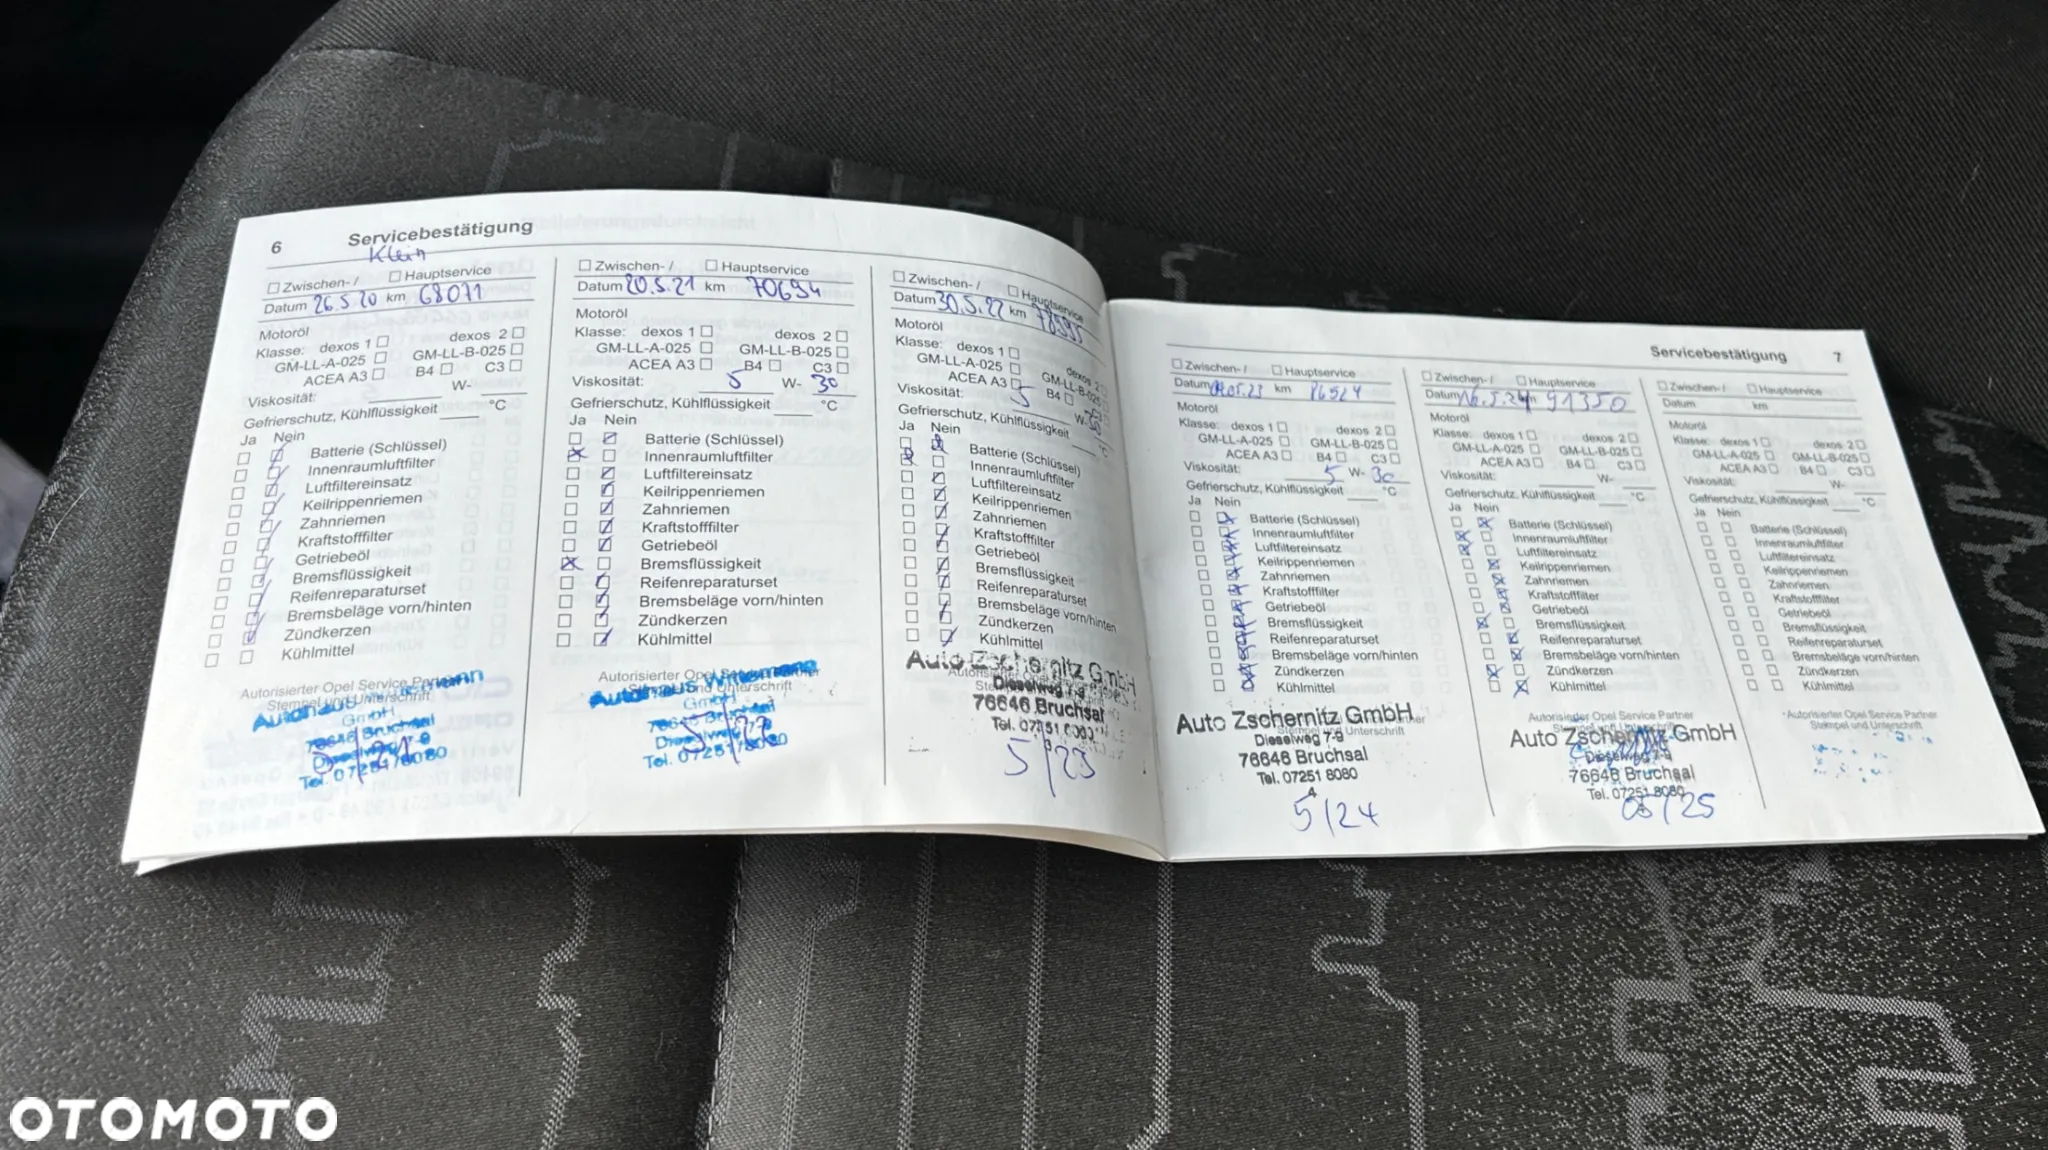 6 Servicebestätigung
Klein
Zwischen- / Hauptservice
Datum 26.5.20 km 68071
Motoröl
Klasse: dexos 1 dexos 2
GM-LL-A-025 GM-LL-B-025
ACEA A3 B4 C3
Viskosität: W-
Gefrierschutz, Kühlflüssigkeit °C
Ja Nein
Batterie (Schlüssel)
Innenraumluftfilter
Luftfiltereinsatz
Keilrippenriemen
Zahnriemen
Kraftstofffilter
Getriebeöl
Bremsflüssigkeit
Reifenreparaturset
Bremsbeläge vorn/hinten
Zündkerzen
Kühlmittel
Autorisierter Opel Service Partner
Stempel und Unterschrift
Autohaus
GmbH
76646 Bruchsal
Tel. 07251/8080
Zwischen- / Hauptservice
Datum 20.5.21 km 70694
Motoröl
Klasse: dexos 1 dexos 2
GM-LL-A-025 GM-LL-B-025
ACEA A3 B4 C3
Viskosität: 5 W- 30
Gefrierschutz, Kühlflüssigkeit °C
Ja Nein
Batterie (Schlüssel)
Innenraumluftfilter
Luftfiltereinsatz
Keilrippenriemen
Zahnriemen
Kraftstofffilter
Getriebeöl
Bremsflüssigkeit
Reifenreparaturset
Bremsbeläge vorn/hinten
Zündkerzen
Kühlmittel
Autorisierter Opel Service Partner
Stempel und Unterschrift
Autohaus
GmbH
76646 Bruchsal
5/22
Tel. 07251/8080
Zwischen- / Hauptservice
Datum 30.5.22 km 78595
Motoröl
Klasse: dexos 1 dexos 2
GM-LL-A-025 GM-LL-B-025
ACEA A3 B4 C3
Viskosität: 5 W- 30
Gefrierschutz, Kühlflüssigkeit °C
Ja Nein
Batterie (Schlüssel)
Innenraumluftfilter
Luftfiltereinsatz
Keilrippenriemen
Zahnriemen
Kraftstofffilter
Getriebeöl
Bremsflüssigkeit
Reifenreparaturset
Bremsbeläge vorn/hinten
Zündkerzen
Kühlmittel
Auto Zschernitz GmbH
Dieselweg 7-9
76646 Bruchsal
Tel. 07251 8080
5/23
Servicebestätigung 7
Zwischen- / Hauptservice
Datum km
Motoröl
Klasse: dexos 1 dexos 2
GM-LL-A-025 GM-LL-B-025
ACEA A3 B4 C3
Viskosität: 5 W- 30
Gefrierschutz, Kühlflüssigkeit °C
Ja Nein
Batterie (Schlüssel)
Innenraumluftfilter
Luftfiltereinsatz
Keilrippenriemen
Zahnriemen
Kraftstofffilter
Getriebeöl
Bremsflüssigkeit
Reifenreparaturset
Bremsbeläge vorn/hinten
Zündkerzen
Kühlmittel
Auto Zschernitz GmbH
Stempel und Unterschrift
Dieselweg 7-9
76646 Bruchsal
Tel. 07251 8080
4
5/24
Zwischen- / Hauptservice
Datum 16.5.24 91350
Motoröl
Klasse: dexos 1 dexos 2
GM-LL-A-025 GM-LL-B-025
ACEA A3 B4 C3
Viskosität: W-
Gefrierschutz, Kühlflüssigkeit °C
Ja Nein
Batterie (Schlüssel)
Innenraumluftfilter
Luftfiltereinsatz
Keilrippenriemen
Zahnriemen
Kraftstofffilter
Getriebeöl
Bremsflüssigkeit
Reifenreparaturset
Bremsbeläge vorn/hinten
Zündkerzen
Kühlmittel
Autorisierter Opel Service Partner
Auto Zschernitz GmbH
Dieselweg 7-9
76646 Bruchsal
Tel. 07251 8080
05/25
Zwischen- / Hauptservice
Datum km
Motoröl
Klasse: dexos 1 dexos 2
GM-LL-A-025 GM-LL-B-025
ACEA A3 B4 C3
Viskosität: W-
Gefrierschutz, Kühlflüssigkeit °C
Ja Nein
Batterie (Schlüssel)
Innenraumluftfilter
Luftfiltereinsatz
Keilrippenriemen
Zahnriemen
Kraftstofffilter
Getriebeöl
Bremsflüssigkeit
Reifenreparaturset
Bremsbeläge vorn/hinten
Zündkerzen
Kühlmittel
Autorisierter Opel Service Partner
Stempel und Unterschrift
OTOMOTO